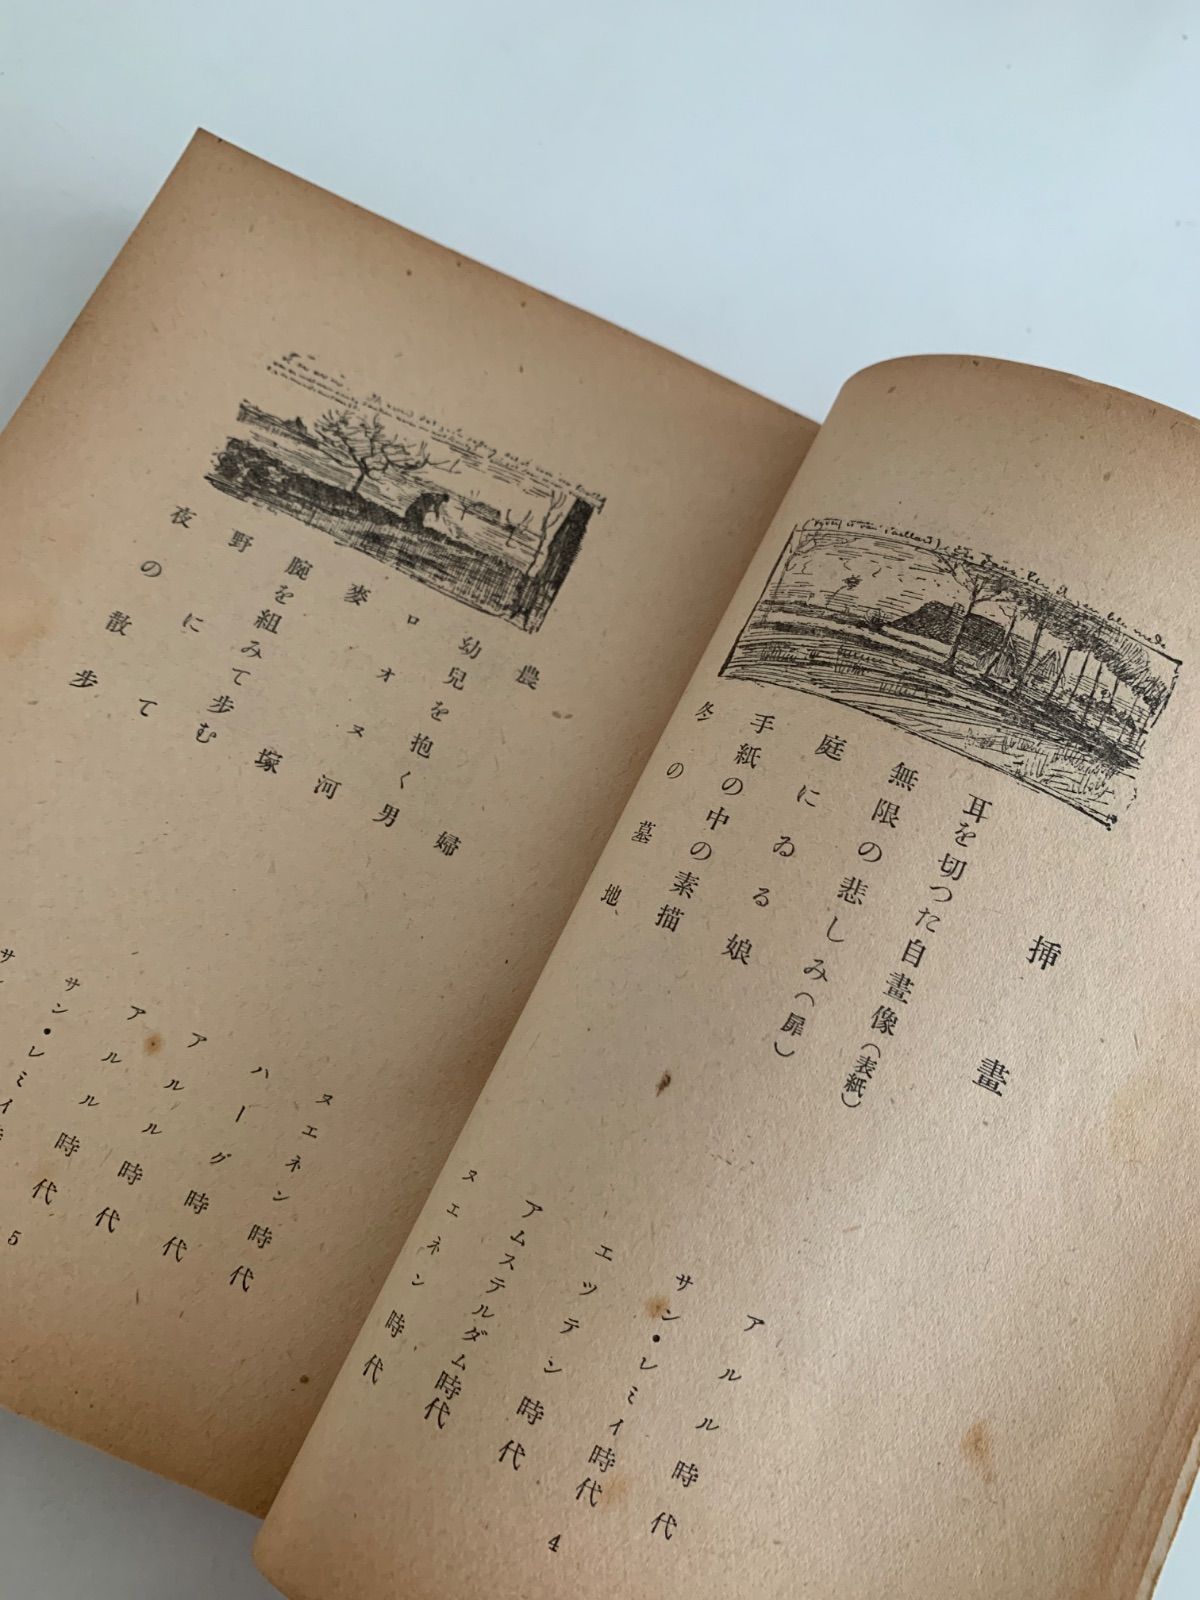 挿畫
耳を切つた自畫像(表紙) アルル時代
無限の悲しみ(扉) サン・レミイ時代
庭にゐる娘 エツテン時代
手紙の中の素描 アムステルダム時代
冬の墓地 ヌエネン時代
4
農婦 ヌエネン時代
幼兒を抱く男 ハーグ時代
ロオヌ河 アルル時代
麥塚 アルル時代
腕を組みて歩む サン・レミイ時
野にて サ
夜の散歩
5